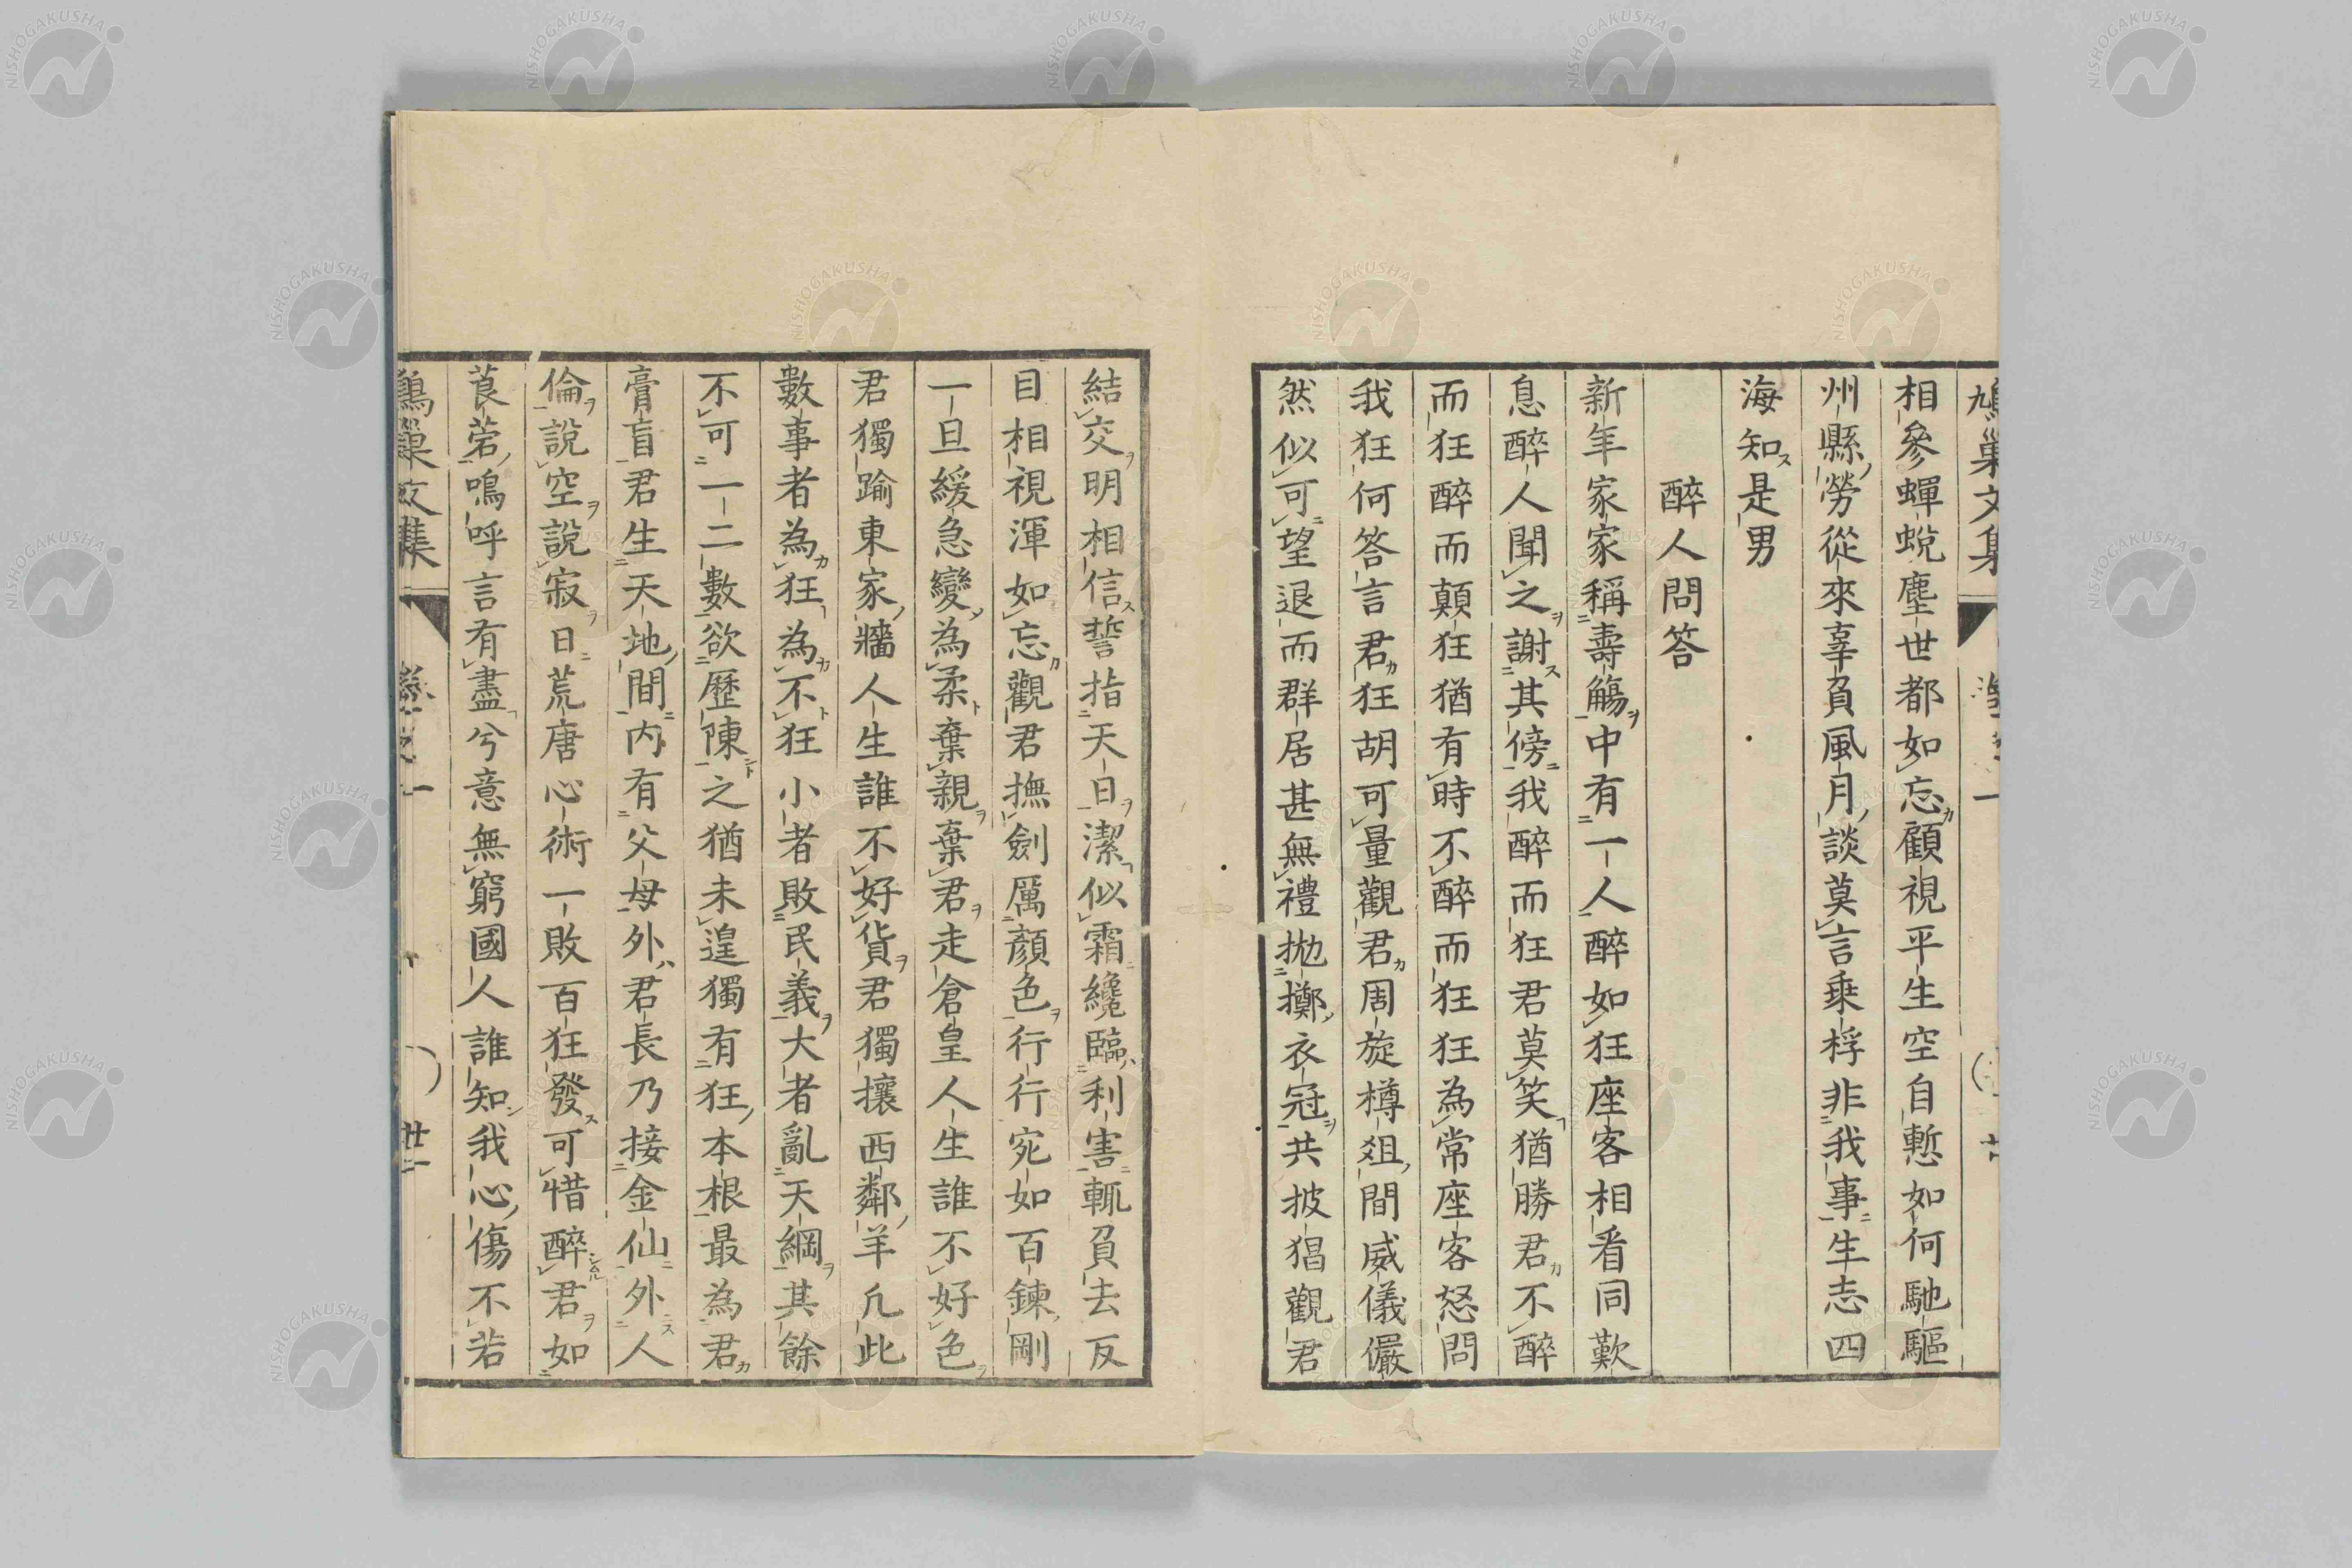 鳩巢文集
相參蟬蛻塵世都如忘顧視平生空自慙如何馳驅
州縣勞從來辜負風月談莫言乗桴非我事生志四
海知是男
醉人問答
新年家家稱壽觴中有一人醉如狂座客相看同歎
息醉人聞之謝其傍我醉而狂君莫笑猶勝君不醉
而狂醉而顛狂猶有時不醉而狂狂為常座客怒問
我狂何答言君狂胡可量觀君周旋樽俎間威儀儼
然似可望退而群居甚無禮拋擲衣冠共披猖觀君
結交明相信誓指天日潔似霜纔臨利害輒負去反
目相視渾如忘觀君撫劍厲顏色行行宛如百鍊剛
一旦緩急變為柔棄親棄君走倉皇人生誰不好色
君獨踰東家牆人生誰不好貨君獨攘西鄰羊凡此
數事者為狂為不狂小者敗民義大者亂天綱其餘
不可一二數欲歷陳之猶未遑獨有狂本根最為君
膏盲君生天地間内有父母外君長乃接金仙外人
倫說空說寂日荒唐心術一敗百狂發可惜醉君如
莨菪嗚呼言有盡兮意無窮國人誰知我心傷不若
鳩巢文集 卷之一 廿一
NISHOGAKUSHA